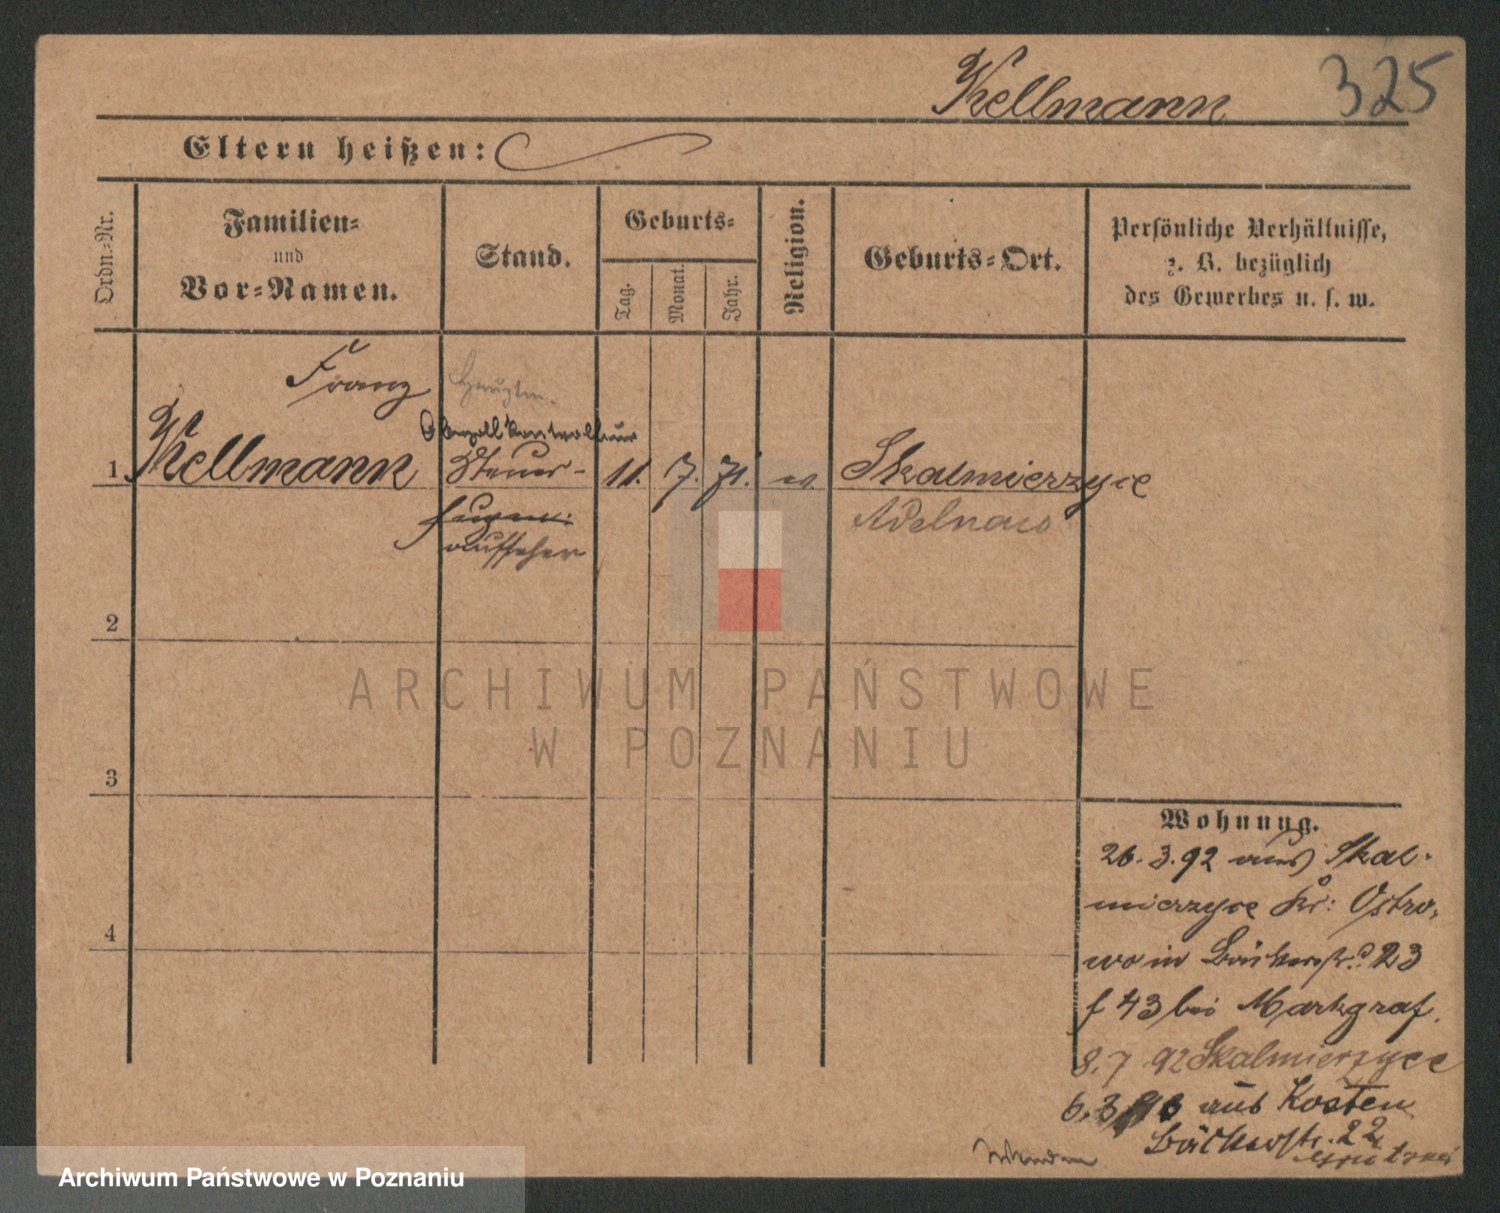 Kellmann 325
Eltern heißen:
Ordn.=Nr.
Familien=
und
Vor=Namen.
Stand.
Geburts=
Tag.
Monat.
Jahr.
Religion.
Geburts=Ort.
Persönliche Verhältnisse,
z. B. bezüglich
des Gewerbes u. s. w.
Franz
1 Kellmann
Steuer-
aufseher
11. 7. 71.
Skalmierzyce
Adelnau
2
3
4
ARCHIWUM PAŃSTWOWE
W POZNANIU
Wohnung.
26. 3. 92 aus Skal-
mierzyce Kr: Ostro-
wo in Bäckerstr. 23
f 43 bei Markgraf.
8. 7 92 Skalmierzyce
aus Kosten
Bäckerstr. 22
Archiwum Państwowe w Poznaniu